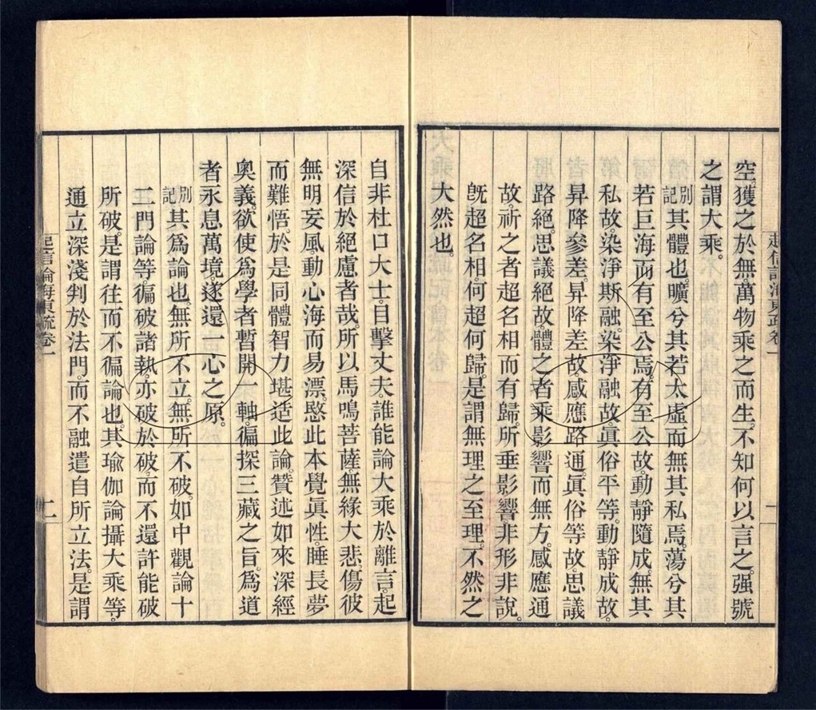 起信論海東疏卷一
一
空。獲之於無萬物乘之而生。不知何以言之。强號
之謂大乘。
別記其體也。曠兮其若太虛而無其私焉。蕩兮其
若巨海而有至公焉。有至公故。動靜隨成。無其
私故。染淨斯融。染淨融故。眞俗平等。動靜成故。
昇降參差。昇降差故。感應路通。眞俗等故。思議
路絕。思議絕故。體之者乘影響而無方。感應通
故。祈之者超名相而有歸。所垂影響非形非說。
旣超名相何超何歸。是謂無理之至理。不然之
大然也。
自非杜口大士。目擊丈夫。誰能論大乘於離言。起
深信於絕慮者哉。所以馬鳴菩薩。無緣大悲。傷彼
無明妄風動心海而易漂。愍此本覺眞性。睡長夢
而難悟。於是同體智力堪造此論。贊述如來深經
奧義。欲使爲學者暫開一軸。徧探三藏之旨。爲道
者永息萬境。遂還一心之原。
別記其爲論也。無所不立。無所不破。如中觀論十
二門論等徧破諸執。亦破於破。而不還許能破
所破。是謂往而不徧論也。其瑜伽論攝大乘等。
通立深淺判於法門。而不融遣自所立法。是謂
起信論海東疏卷一
二